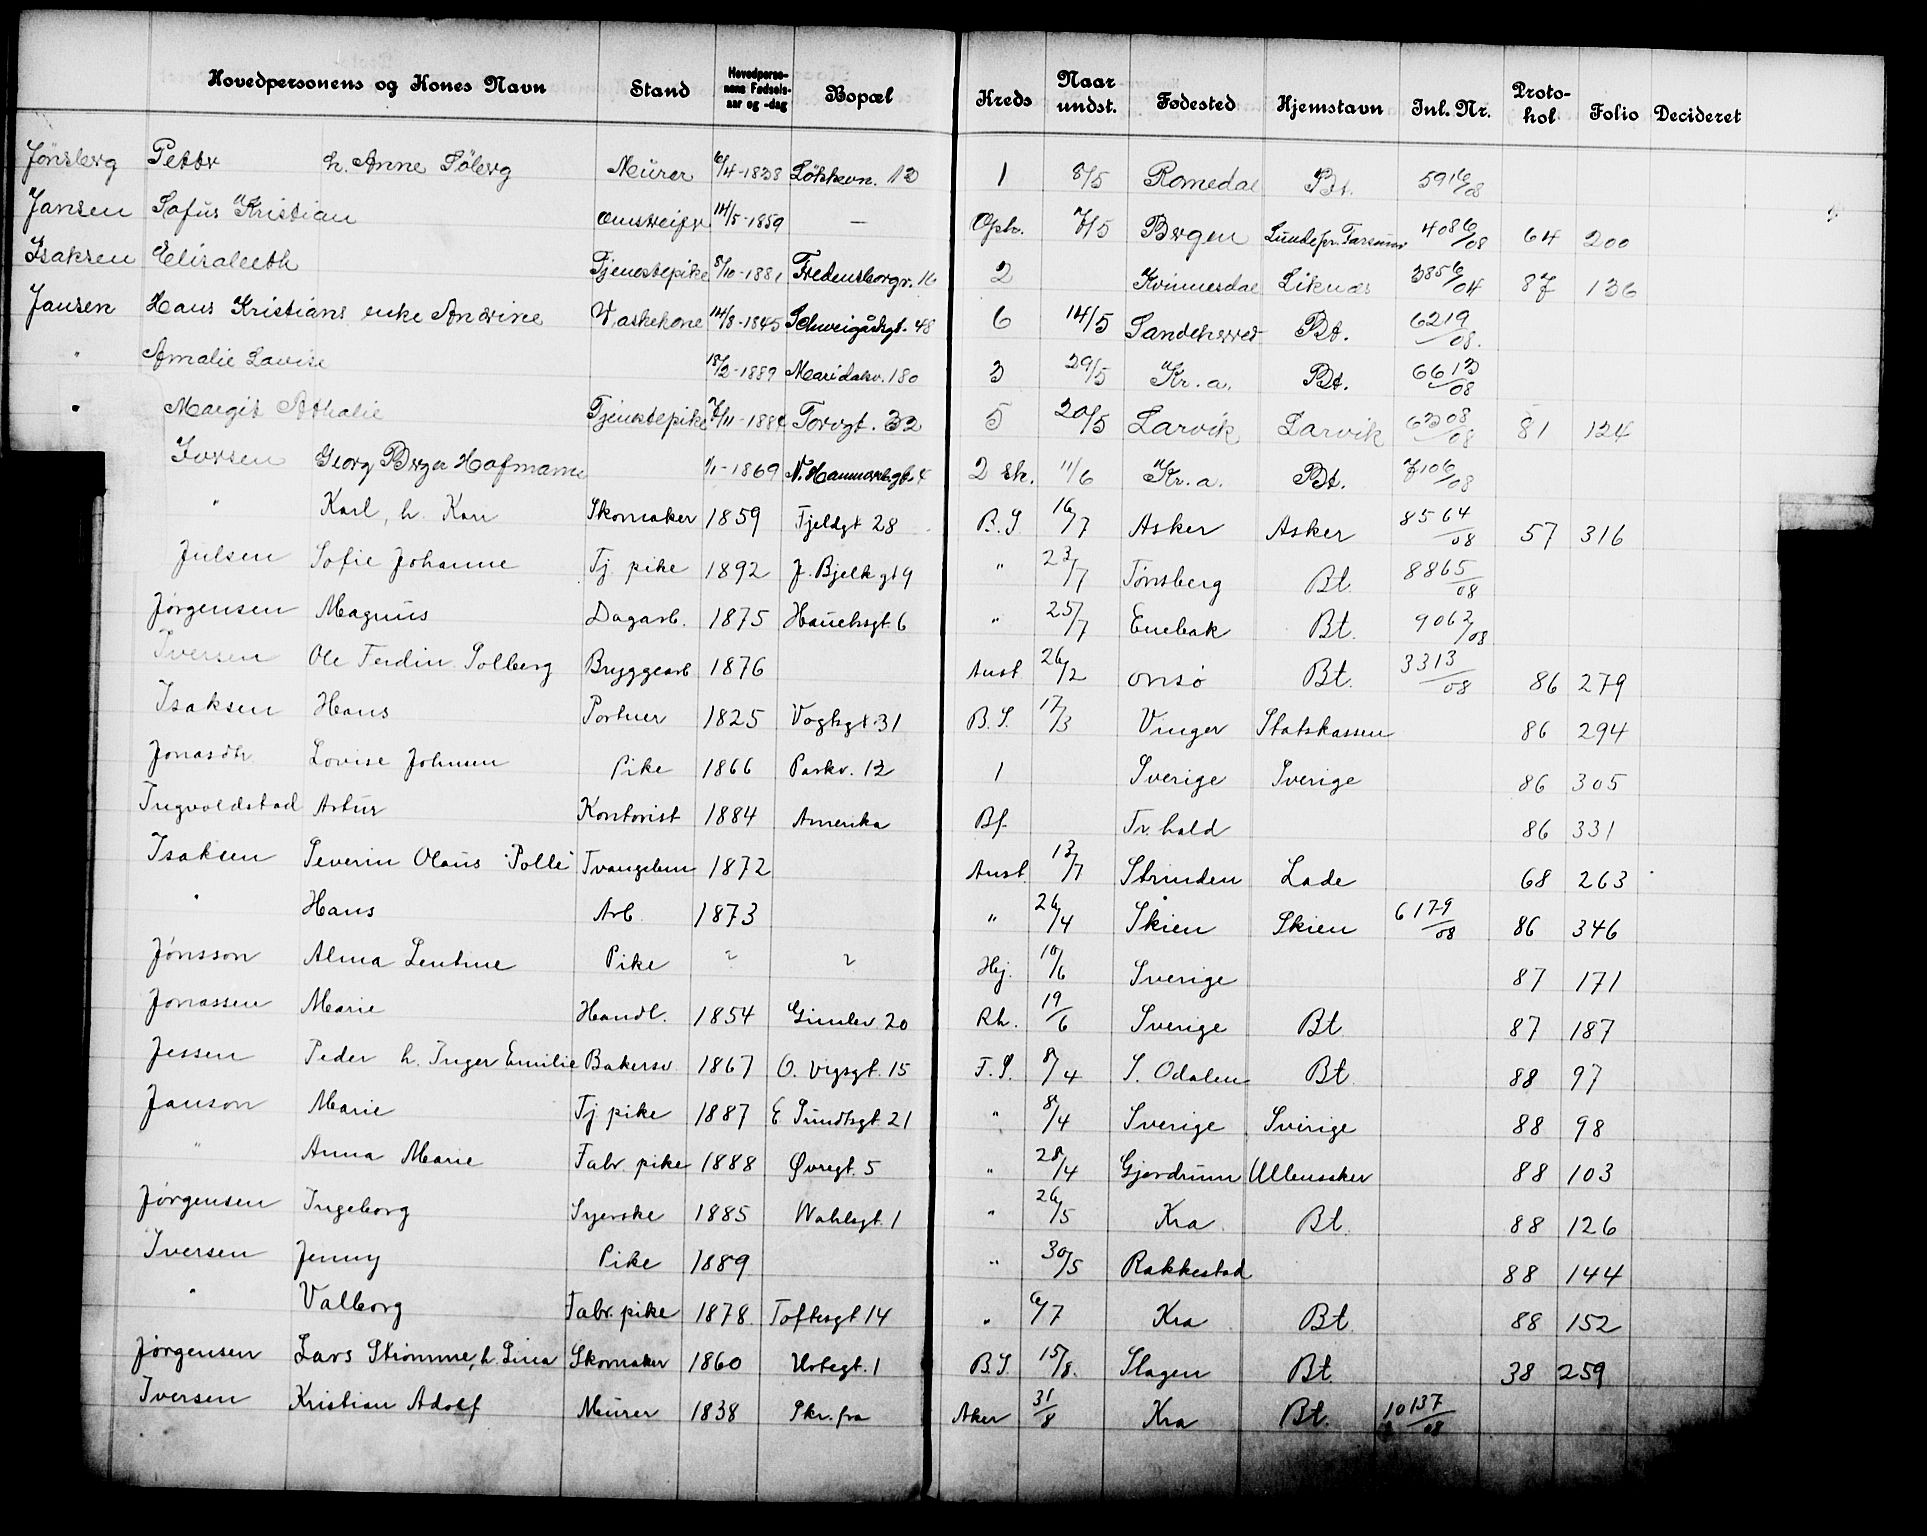 Hovedpersonens og Kones Navn Stand Hovedperso-nens Fødsels-aar og -dag Bopæl Kreds Naar undst. Fødested Hjemstavn Inl. Nr. Proto-hol Folio Decideret
Jönsberg Petter h. Anne Söberg Murer 6/4-1838 Løkkevn. 12 1 8/5 Romedal Bt. 5916/08
Jansen Sofus Kristian omstreifer 14/5-1859 — Oph. 7/5 Bergen Lunde pr. Farsund 4086/08 64 200
Isaksen Elisabeth Tjenestepike 8/10-1881 Fredensborgv. 16 2 Kvinnesdal Liknes 3856/04 87 136
Jansen Hans Kristians enke Andrine Vaskekone 14/8-1845 Schweigårdgt. 48 6 14/5 Sandeherred Bt. 6219/08.
" Amalie Lovise 18/2-1889 Maridalsv. 180 3 29/5 Kr.a. Bt. 6613/08
" Margit Athalie Tjenestepike 7/11-1884 Torvgt. 32 5 20/5 Larvik Larvik 6308/08 81 124
Iversen Georg Berger Hofmann 1/1-1869 N. Hammersbgt. 4 2 sk. 11/6 Kr.a. Bt. 7106/08
" Karl, h. Kari Skomaker 1859 Fjeldgt 28 B.S 16/7 Asker Asker 8564/08 57 316
Julsen Sofie Johanne Tj. pike 1892 J. Bjelk gt 9 " 23/7 Tønsberg Bt. 8865/08
Jørgensen Magnus Dagarb. 1875 Hauchsgt. 6 " 25/7 Enebak Bt. 9062/08
Iversen Ole Ferdin. Solberg Bryggearb 1876 Anst 26/2 onsø Bt. 3313/08 86 279
Isaksen Hans Portner 1825 Vogtsgt. 31 B.S. 17/3 Vinger Statskassen 86 294
Jonasdtr. Lovise Johnsen Pike 1866 Parkv. 12 1 Sverige Sverige 86 305
Ingvoldstad Artur Kontorist 1884 Amerika Bf. Tr.hald 86 331
Isaksen Severin Olaus "Polle" Tvangslem 1872 Anst. 13/7 Strinden Lade 68 263
" Hans Arb. 1873 " 26/4 Skien Skien 6179/08 86 346
Jønsson Alma Lentine Pike " " Hej. 10/6 Sverige 87 171
Jonassen Marie Handl. 1854 Gimlev 20 Rh. 19/6 Sverige Bt 87 187
Jessen Peder h. Inger Emilie Bakersv. 1867 O. vigsgt. 15 F.S. 8/4 S. Odalen Bt 88 97
Janson Marie Tj pike 1887 E Sundtsgt. 21 " 8/4 Sverige Sverige 88 98
" Anna Marie Fabr. pike 1888 Øvregt. 5 " 28/4 Gjerdrum Ullensaker 88 103
Jørgensen Ingeborg Syerske 1885 Wahlsgt. 1 " 26/5 Kra Bt. 88 126
Iversen Jenny Pike 1889 " 30/5 Rakkestad 88 144
" Valborg Fabr. pike 1878 Toftesgt 14 " 6/7 Kra Bt 88 152
Jørgensen Lars Strømme, h. Lina Skomaker 1860 Urtegt. 1 B.S. 15/8. Slagen Bt. 38 259
Iversen Kristian Adolf Murer 1838 Skr. fra Aker 31/8 Kra Bt. 10137/08